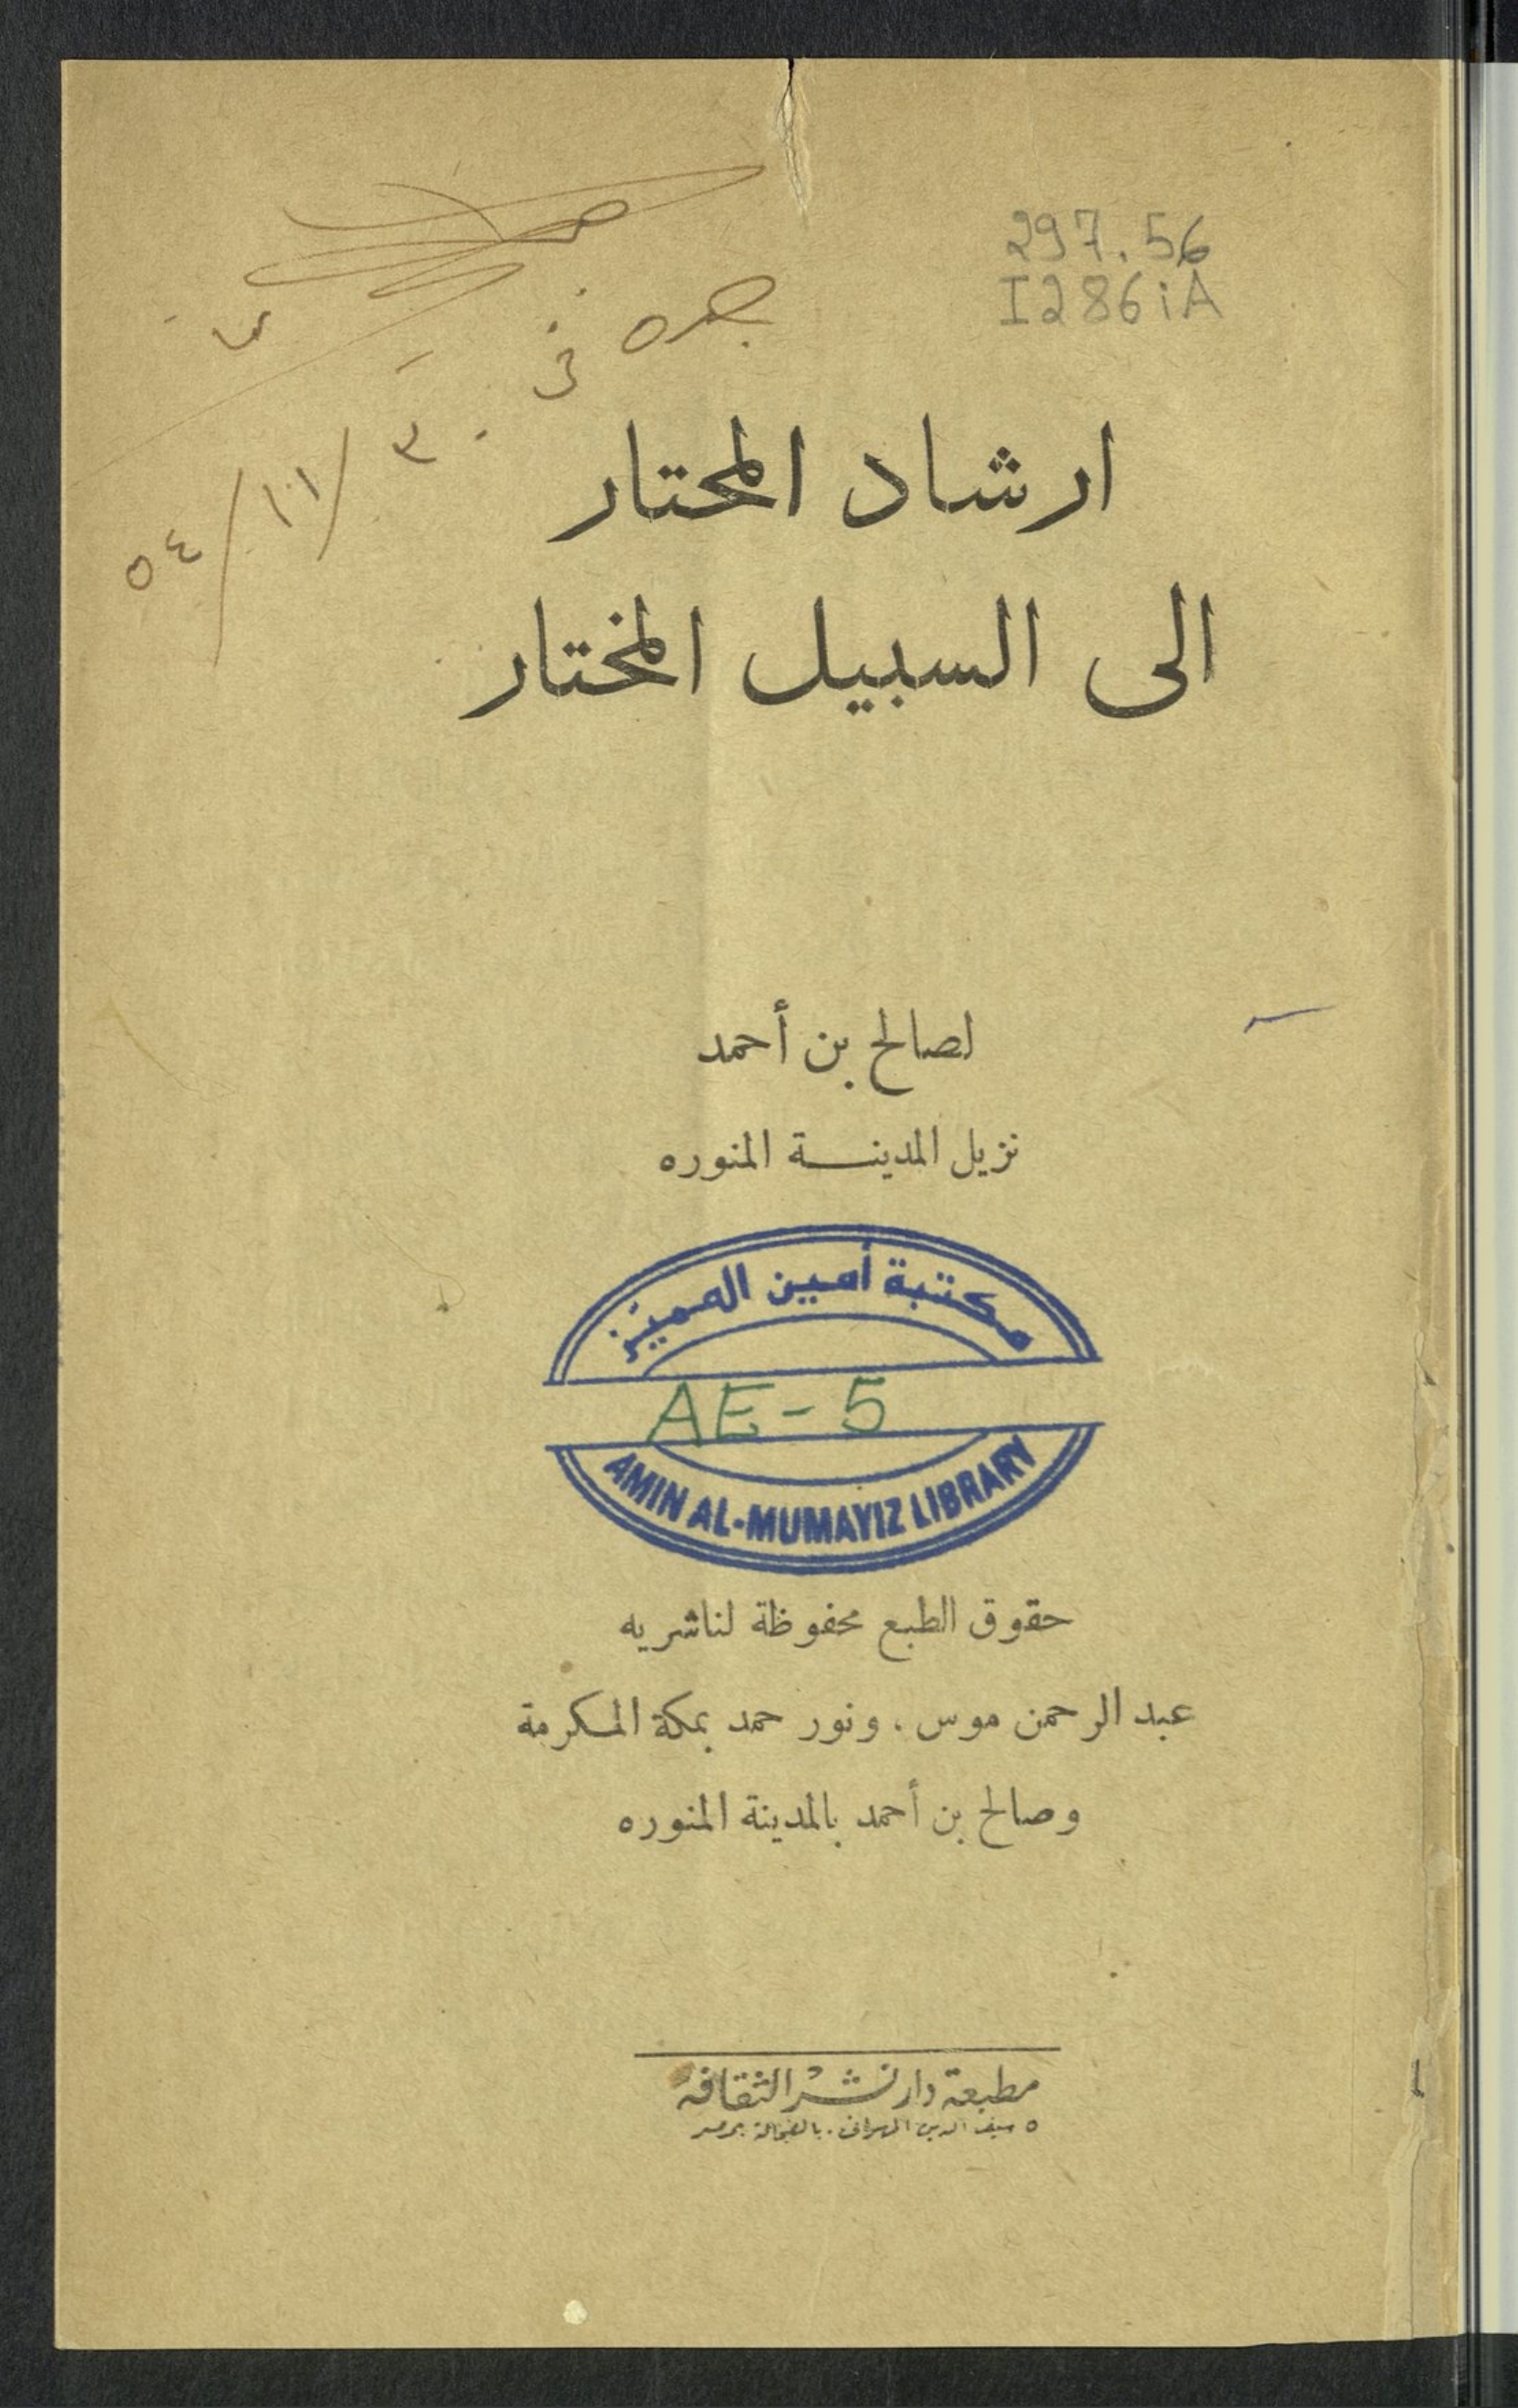 297.56
I286iA
جده في
٣٠/١١/٥٤
ارشاد المحتار
الى السبيل المختار
لصالح بن أحمد
نزيل المدينـــة المنوره
مكتبة أمين المميّز
AE-5
AMIN AL-MUMAYIZ LIBRARY
حقوق الطبع محفوظة لناشريه
عبد الرحمن موس . ونور حمد بمكة المكرمة
وصالح بن أحمد بالمدينة المنوره
مطبعة دار نشر الثقافة
٥ سيف الدين المهرانى . بالفجالة بمصر